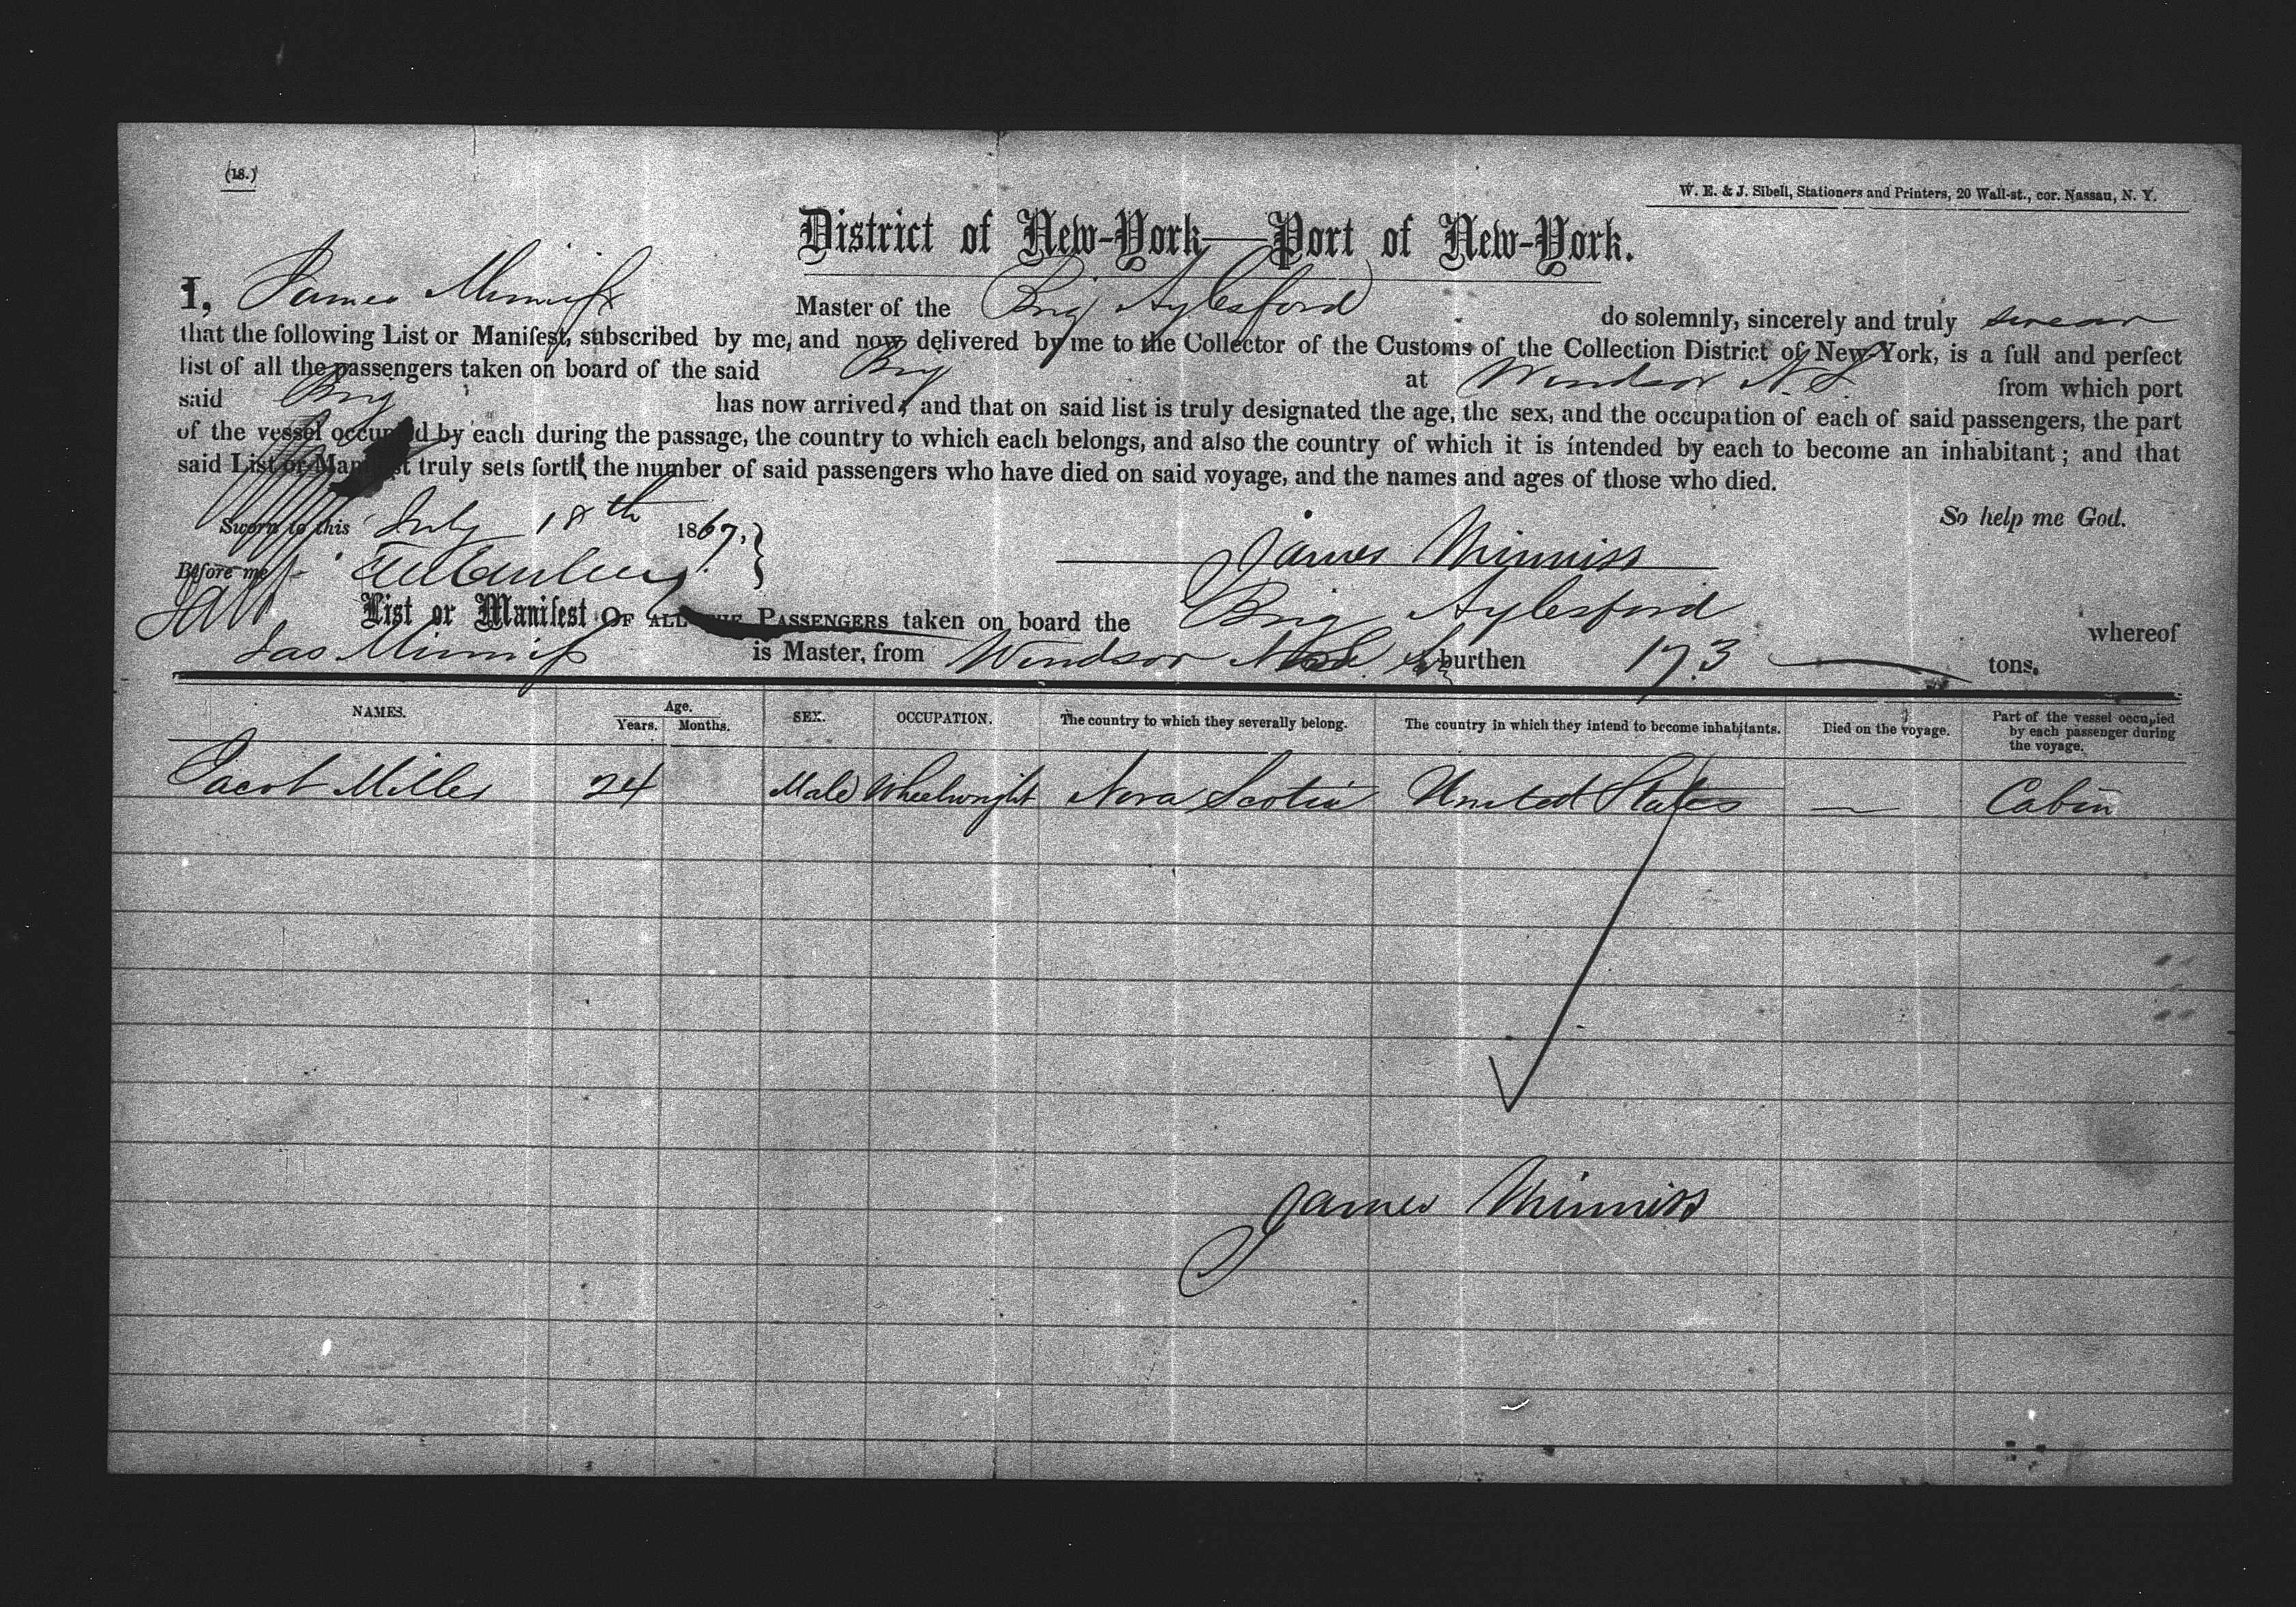 (18.)
W. E. & J. Sibell, Stationers and Printers, 20 Wall-st., cor. Nassau, N. Y.
District of New-York—Port of New-York.
I, James Minniss Master of the Brig Aylesford do solemnly, sincerely and truly swear
that the following List or Manifest, subscribed by me, and now delivered by me to the Collector of the Customs of the Collection District of New-York, is a full and perfect
list of all the passengers taken on board of the said Brig at Windsor N.S. from which port
said Brig has now arrived; and that on said list is truly designated the age, the sex, and the occupation of each of said passengers, the part
of the vessel occupied by each during the passage, the country to which each belongs, and also the country of which it is intended by each to become an inhabitant; and that
said List or Manifest truly sets forth the number of said passengers who have died on said voyage, and the names and ages of those who died.
So help me God.
Sworn to this July 18th 1867,
James Minniss
Before me
List or Manifest OF ALL THE PASSENGERS taken on board the Brig Aylesford whereof
Jas Minniss is Master, from Windsor N.S. burthen 173 tons.
NAMES. Age. Years. Months. SEX. OCCUPATION. The country to which they severally belong. The country in which they intend to become inhabitants. Died on the voyage. Part of the vessel occupied by each passenger during the voyage.
Jacob Miller 24 Male Wheelwright Nova Scotia United States — Cabin
James Minniss